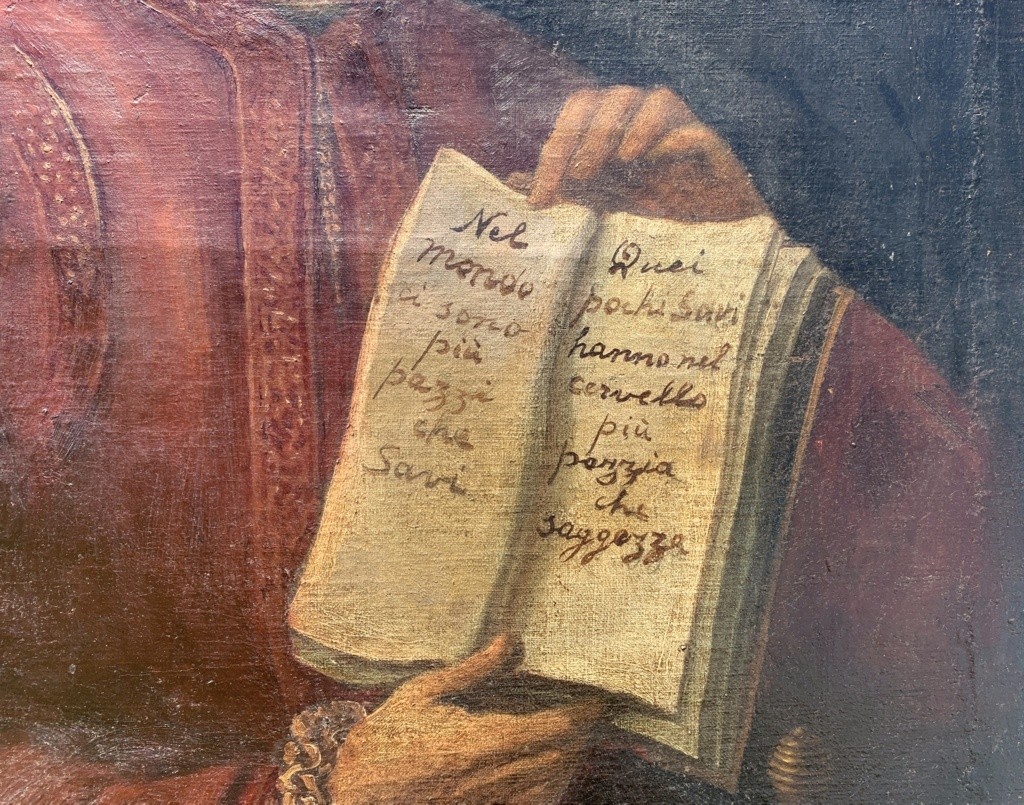 Nel
mondo
ci sono
più
pazzi
che
Savi
Quei
pochi Savi
hanno nel
cervello
più
pazzia
che
saggezza